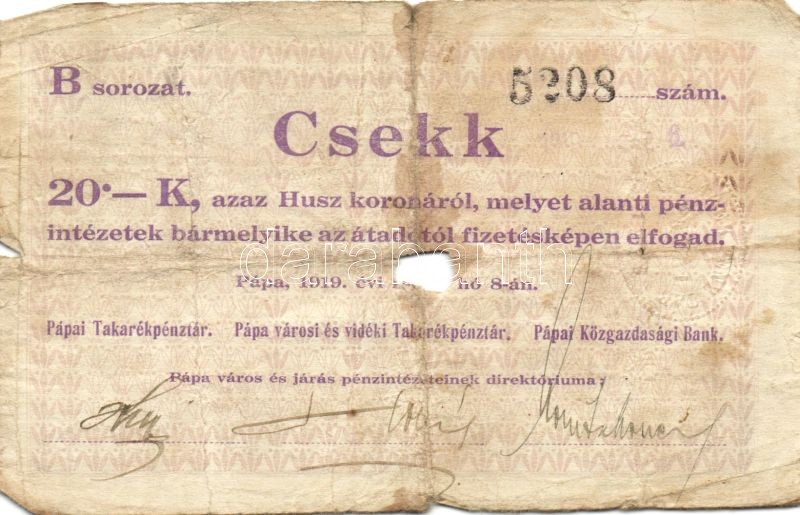 B sorozat. 5208 szám.
Csekk
20·— K, azaz Husz koronáról, melyet alanti pénz-
intézetek bármelyike az átadótól fizetésképen elfogad.
Pápa, 1919. évi hó 8-án.
Pápai Takarékpénztár. Pápa városi és vidéki Takarékpénztár. Pápai Közgazdasági Bank.
Pápa város és járás pénzintézeteinek direktóriuma:
darabanth